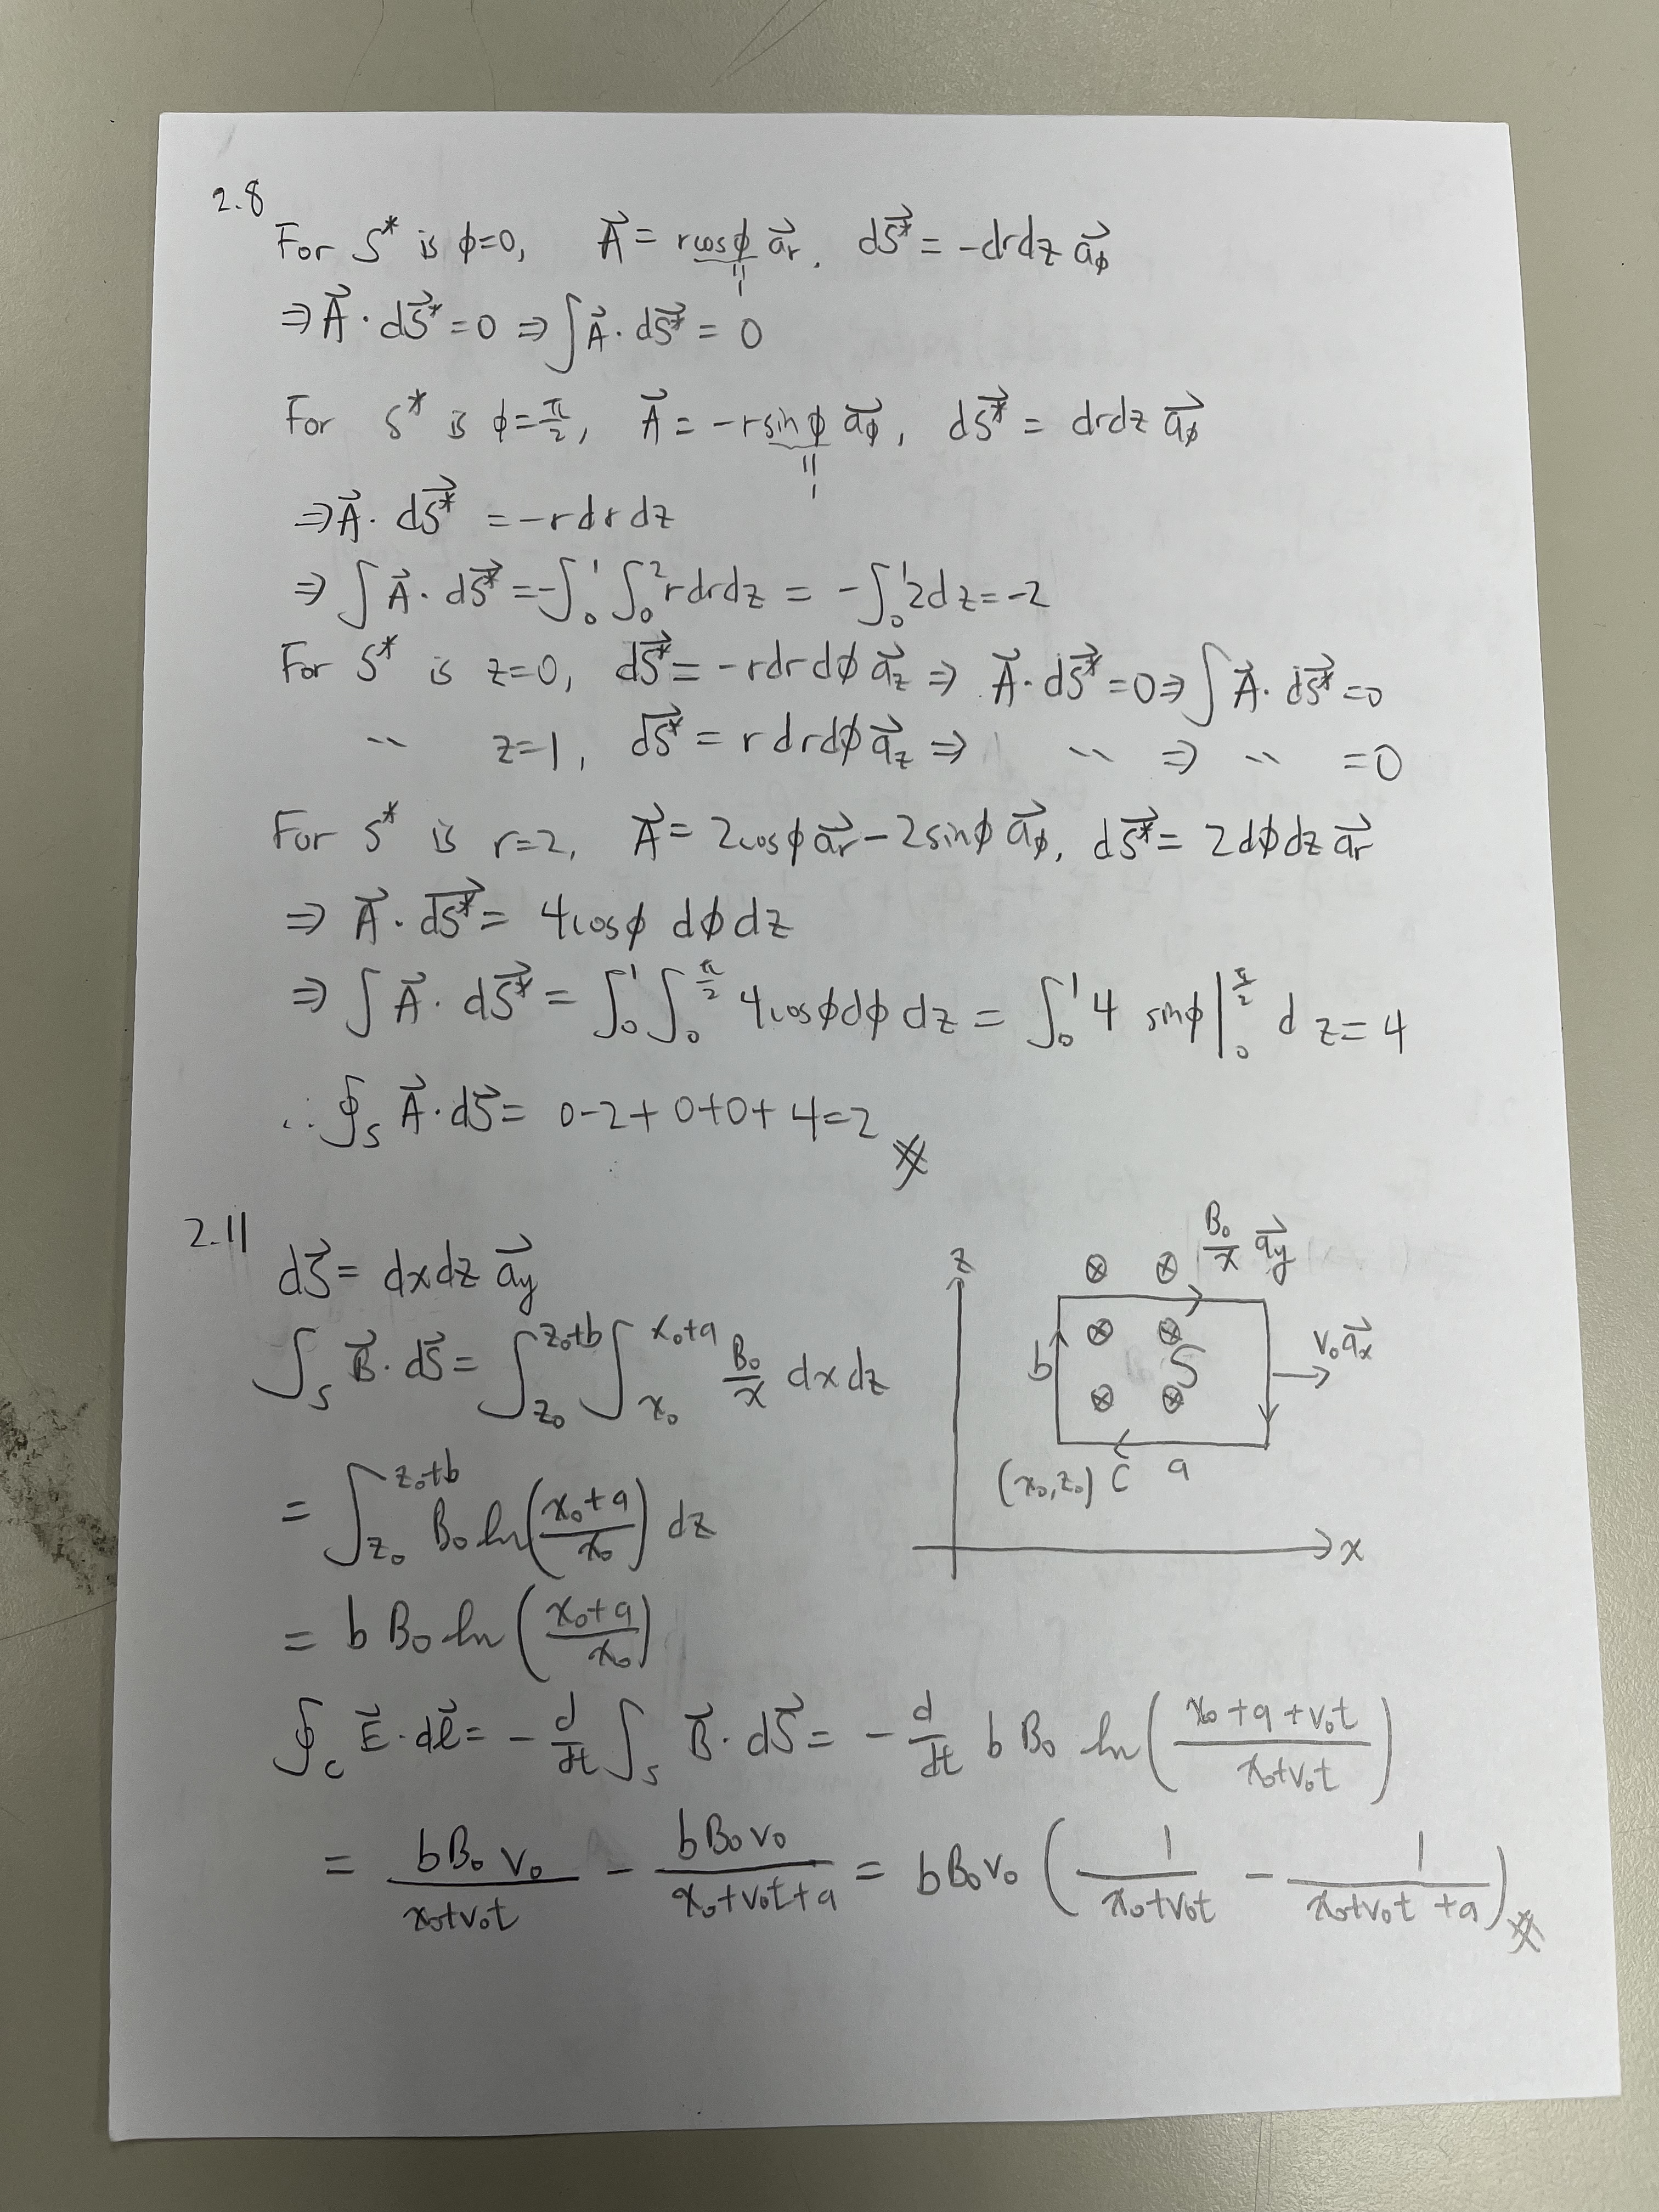 2.8
For S* is φ=0, A⃗ = r cosφ a⃗r, dS⃗* = -drdz a⃗φ
"
1
⇒ A⃗ · dS⃗* = 0 ⇒ ∫ A⃗ · dS⃗* = 0
For S* is φ=π/2, A⃗ = -r sinφ a⃗φ, dS⃗* = drdz a⃗φ
"
1
⇒ A⃗ · dS⃗* = -r dr dz
⇒ ∫ A⃗ · dS⃗* = -∫₀¹ ∫₀² r dr dz = -∫₀¹ 2 dz = -2
For S* is z=0, dS⃗* = -r dr dφ a⃗z ⇒ A⃗ · dS⃗* = 0 ⇒ ∫ A⃗ · dS⃗* = 0
〃 z=1, dS⃗* = r dr dφ a⃗z ⇒ 〃 ⇒ 〃 = 0
For S* is r=2, A⃗ = 2cosφ a⃗r - 2sinφ a⃗φ, dS⃗* = 2dφdz a⃗r
⇒ A⃗ · dS⃗* = 4cosφ dφdz
⇒ ∫ A⃗ · dS⃗* = ∫₀¹ ∫₀^(π/2) 4cosφ dφ dz = ∫₀¹ 4 sinφ |₀^(π/2) dz = 4
∴ ∮_S A⃗ · dS⃗ = 0-2+0+0+4=2 #
2.11
dS⃗ = dxdz a⃗y
∫_S B⃗ · dS⃗ = ∫_(z₀)^(z₀+b) ∫_(x₀)^(x₀+a) B₀/x dx dz
= ∫_(z₀)^(z₀+b) B₀ ln((x₀+a)/x₀) dz
= b B₀ ln((x₀+a)/x₀)
z
B₀/x a⃗y
b
S
v₀ a⃗x
(x₀,z₀) C a
x
∮_C E⃗ · dl⃗ = -d/dt ∫_S B⃗ · dS⃗ = -d/dt b B₀ ln((x₀+a+v₀t)/(x₀+v₀t))
= bB₀v₀/(x₀+v₀t) - bB₀v₀/(x₀+v₀t+a) = bB₀v₀ (1/(x₀+v₀t) - 1/(x₀+v₀t+a)) #